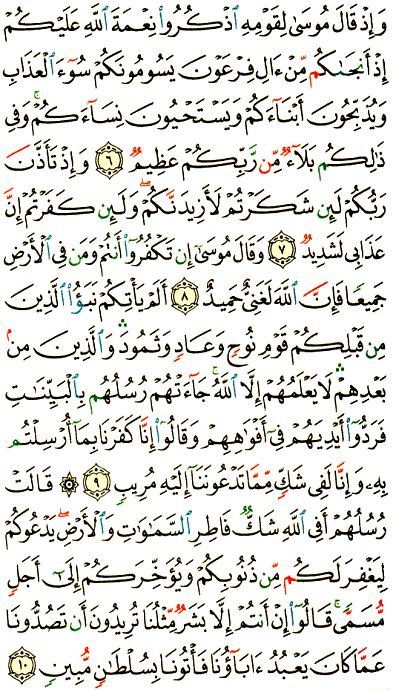 وَإِذۡ قَالَ مُوسَىٰ لِقَوۡمِهِ ٱذۡكُرُواْ نِعۡمَةَ ٱللَّهِ عَلَيۡكُمۡ
إِذۡ أَنجَىٰكُم مِّنۡ ءَالِ فِرۡعَوۡنَ يَسُومُونَكُمۡ سُوٓءَ ٱلۡعَذَابِ
وَيُذَبِّحُونَ أَبۡنَآءَكُمۡ وَيَسۡتَحۡيُونَ نِسَآءَكُمۡۚ وَفِي
ذَٰلِكُم بَلَآءٞ مِّن رَّبِّكُمۡ عَظِيمٞ ٦ وَإِذۡ تَأَذَّنَ
رَبُّكُمۡ لَئِن شَكَرۡتُمۡ لَأَزِيدَنَّكُمۡۖ وَلَئِن كَفَرۡتُمۡ إِنَّ
عَذَابِي لَشَدِيدٞ ٧ وَقَالَ مُوسَىٰٓ إِن تَكۡفُرُوٓاْ أَنتُمۡ وَمَن فِي ٱلۡأَرۡضِ
جَمِيعٗا فَإِنَّ ٱللَّهَ لَغَنِيٌّ حَمِيدٌ ٨ أَلَمۡ يَأۡتِكُمۡ نَبَؤُاْ ٱلَّذِينَ
مِن قَبۡلِكُمۡ قَوۡمِ نُوحٖ وَعَادٖ وَثَمُودَۛ وَٱلَّذِينَ مِنۢ
بَعۡدِهِمۡۛ لَا يَعۡلَمُهُمۡ إِلَّا ٱللَّهُۚ جَآءَتۡهُمۡ رُسُلُهُم بِٱلۡبَيِّنَٰتِ
فَرَدُّوٓاْ أَيۡدِيَهُمۡ فِيٓ أَفۡوَٰهِهِمۡ وَقَالُوٓاْ إِنَّا كَفَرۡنَا بِمَآ أُرۡسِلۡتُم
بِهِۦ وَإِنَّا لَفِي شَكّٖ مِّمَّا تَدۡعُونَنَآ إِلَيۡهِ مُرِيبٖ ٩ ۞ قَالَتۡ
رُسُلُهُمۡ أَفِي ٱللَّهِ شَكّٞ فَاطِرِ ٱلسَّمَٰوَٰتِ وَٱلۡأَرۡضِۖ يَدۡعُوكُمۡ
لِيَغۡفِرَ لَكُم مِّن ذُنُوبِكُمۡ وَيُؤَخِّرَكُمۡ إِلَىٰٓ أَجَلٖ
مُّسَمّٗىۚ قَالُوٓاْ إِنۡ أَنتُمۡ إِلَّا بَشَرٞ مِّثۡلُنَا تُرِيدُونَ أَن تَصُدُّونَا
عَمَّا كَانَ يَعۡبُدُ ءَابَآؤُنَا فَأۡتُونَا بِسُلۡطَٰنٖ مُّبِينٖ ١٠